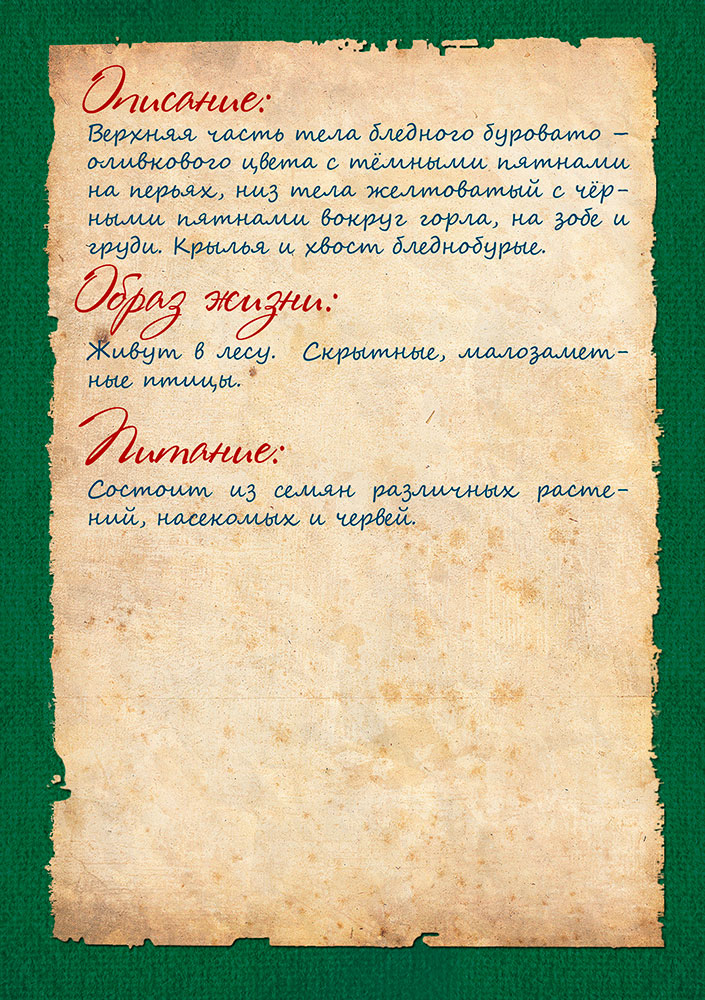 Описание:
Верхняя часть тела бледного буровато –
оливкового цвета с тёмными пятнами
на перьях, низ тела желтоватый с чёр-
ными пятнами вокруг горла, на зобе и
груди. Крылья и хвост бледнобурые.
Образ жизни:
Живут в лесу. Скрытные, малозамет-
ные птицы.
Питание:
Состоит из семян различных расте-
ний, насекомых и червей.